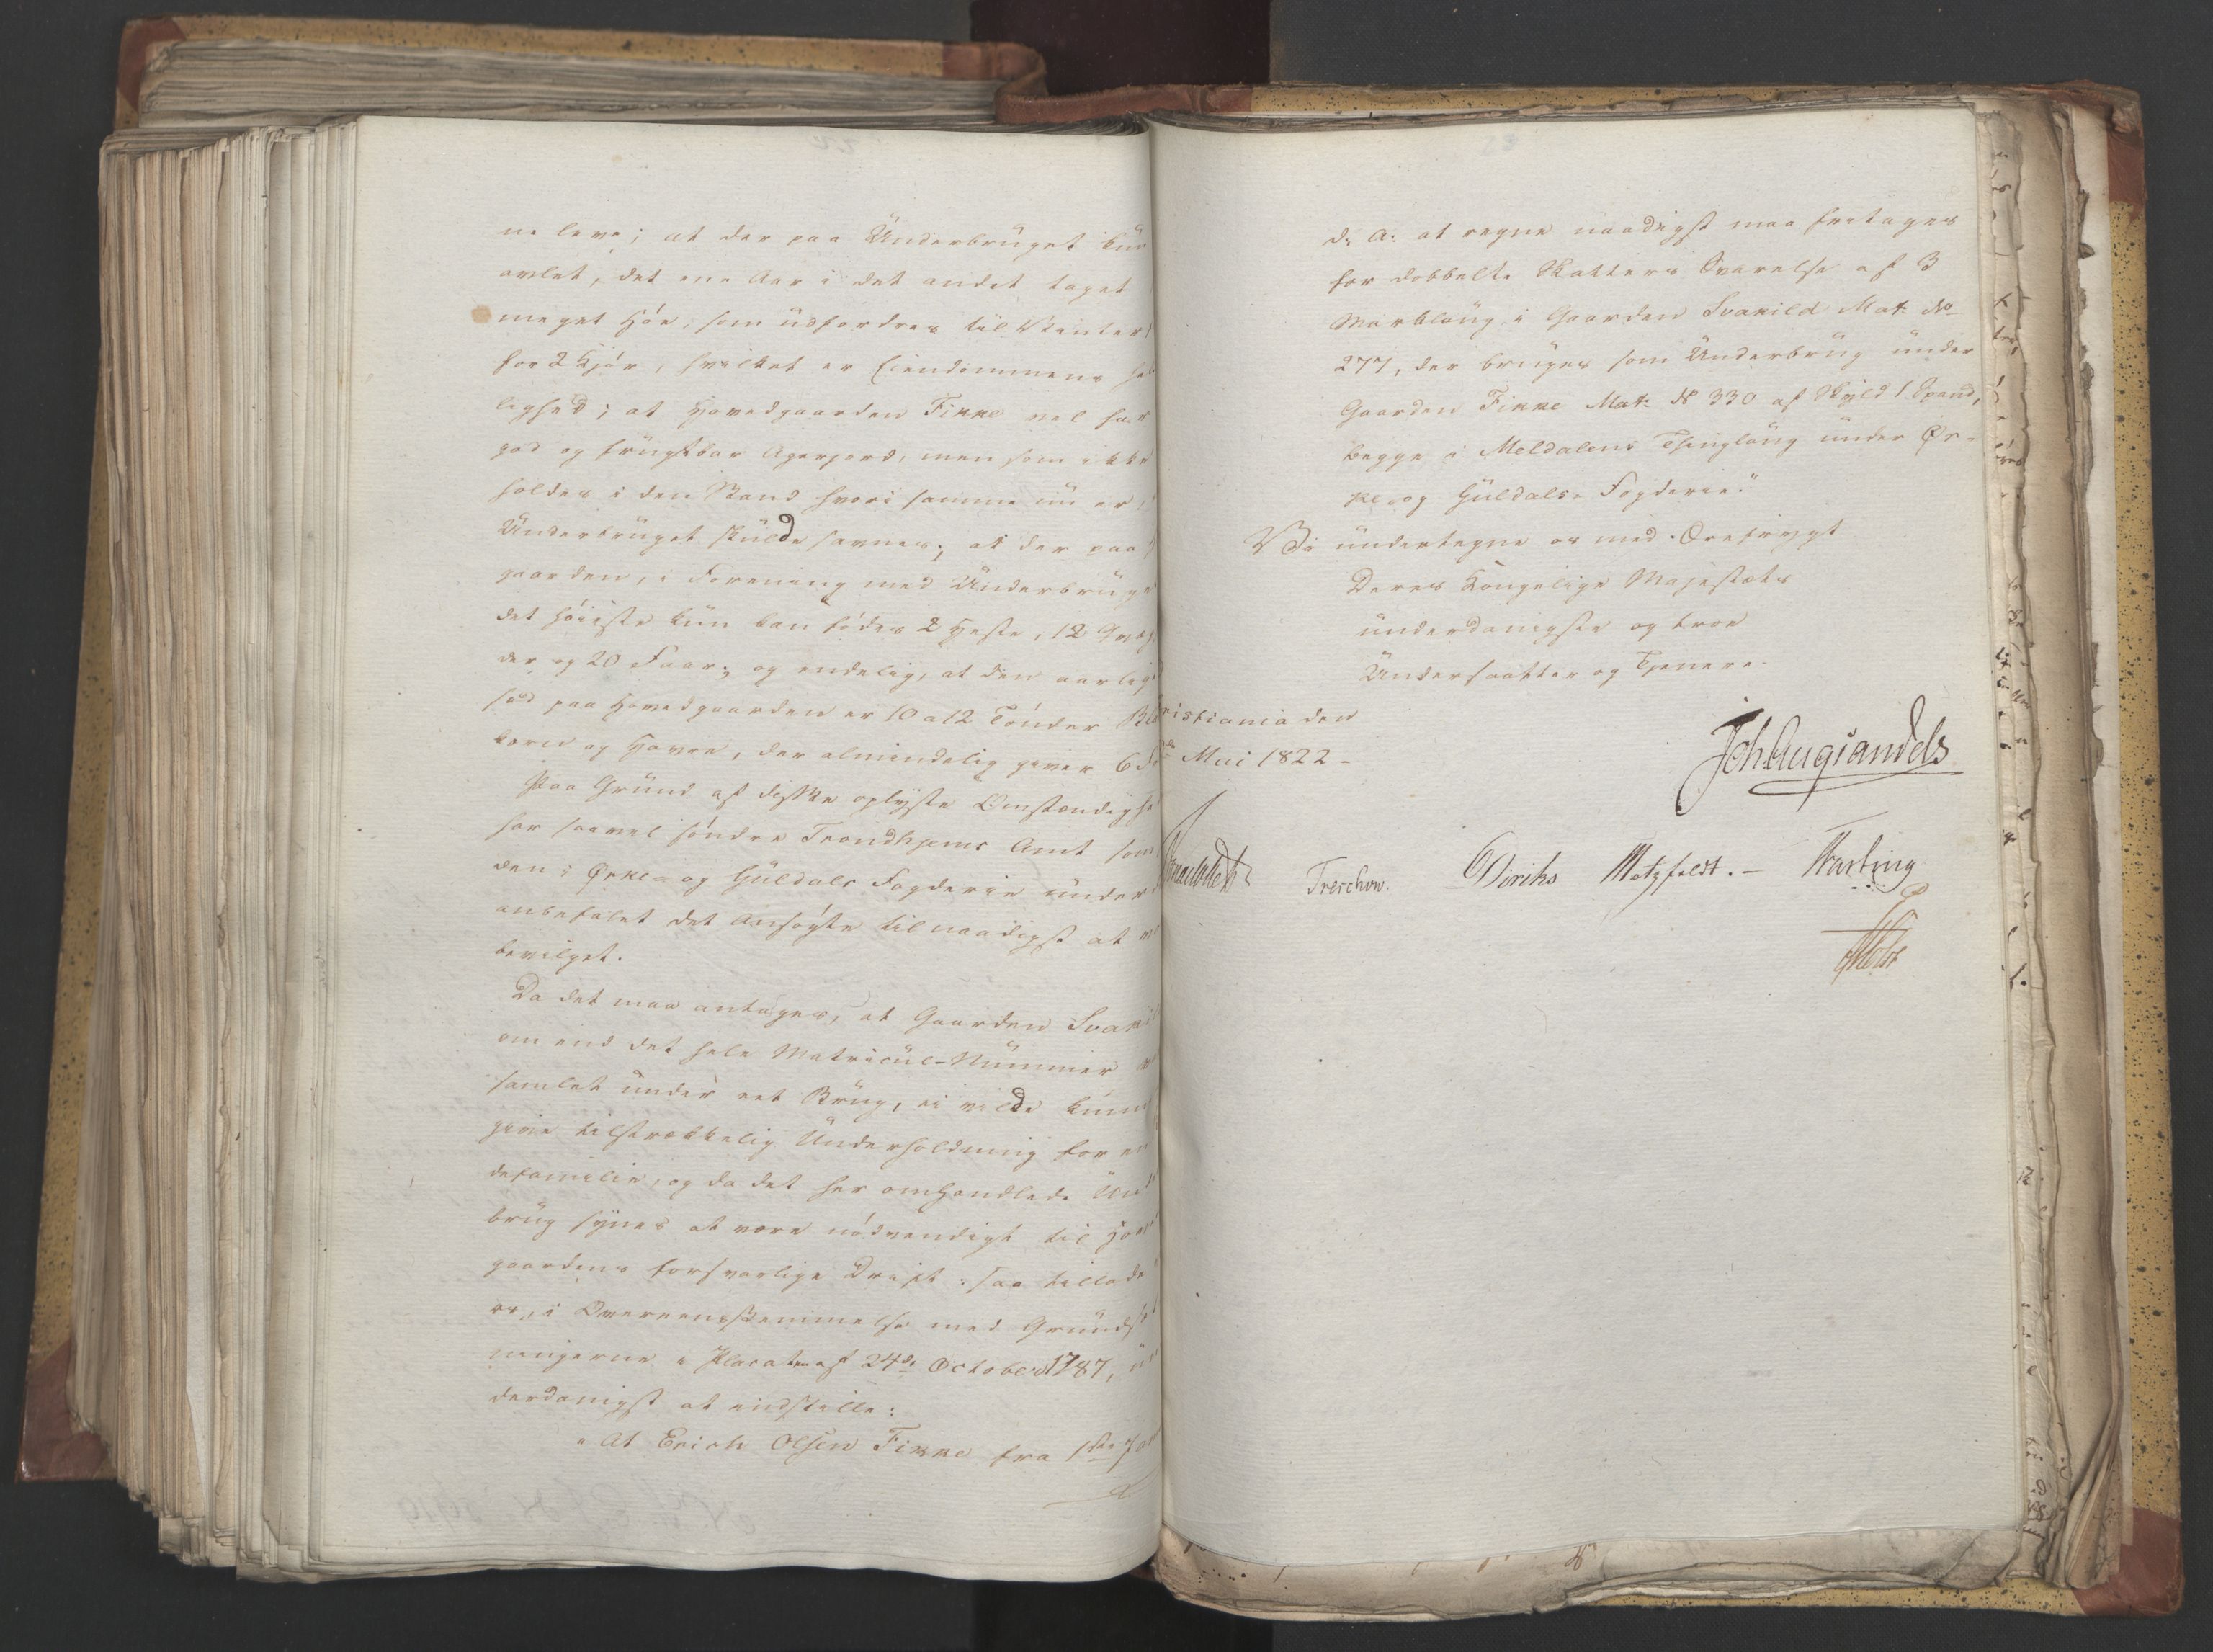 ne leve; at der paa Underbruget kun
avlet, det ene Aar i det andet taget
meget Høe, som udfordres til Vinter
for 2 Kjør, hvilket er Eiendommens
lighed; at Hovedgaarden Finne vel har
god og frugtbar Agerjord, men som ikke
holdes i den Stand hvori samme nu er,
Underbruget skulde savnes; at der paa
gaarden, i Forening med Underbruge
det høieste kun kan fødes 2 Heste, 12
der og 20 Faar; og endelig, at den aarlige
sæd paa Hovedgaarden er 10 a 12 Tønder
korn og Havre, der almindelig giver 6
Paa Grund af disse oplyste Omstændighe
har saavel søndre Trondhjems Amt som
den i Ørke- og Guldals Fogderie under
anbefalet det Ansøgte til naadigst at
bevilget.
Da det maa antages, at Gaarden Svanil
om end det hele Matricul-Nummer
samlet under eet Brug, ei vilde kunne
give tilstrækkelig Underholdning for en
defamilie, og da det her omhandlede Und
brug synes at være nødvendigt til Hov
gaardens forsvarlige Drift: saa tillade
os, i Overeensstemmelse med Grundsæt
ningerne i Placaten af 24de October 1787, un
derdanigst at indstille:
"At Erich Olsen Finne fra 1ste Jan
d. A. at regne naadigst maa fritages
for dobbelte Skatters Svarelse af 3
Markløug i Gaarden Svanild Mat: No
277, der bruges som Underbrug under
Gaarden Finne Mat: No 330 af Skyld 1 Spand,
begge i Meldalens Thinglaug under Ør-
ke- og Guldals Fogderie."
Vi undertegne os med Ærefrygt
Deres Kongelige Majestæts
underdanigste og troe
Undersaatter og Tjenere.
ristiania den
Mai 1822 -
Joh Aug Sandels
Treschow. Diriks Motzfeldt. - Fasting
Holst